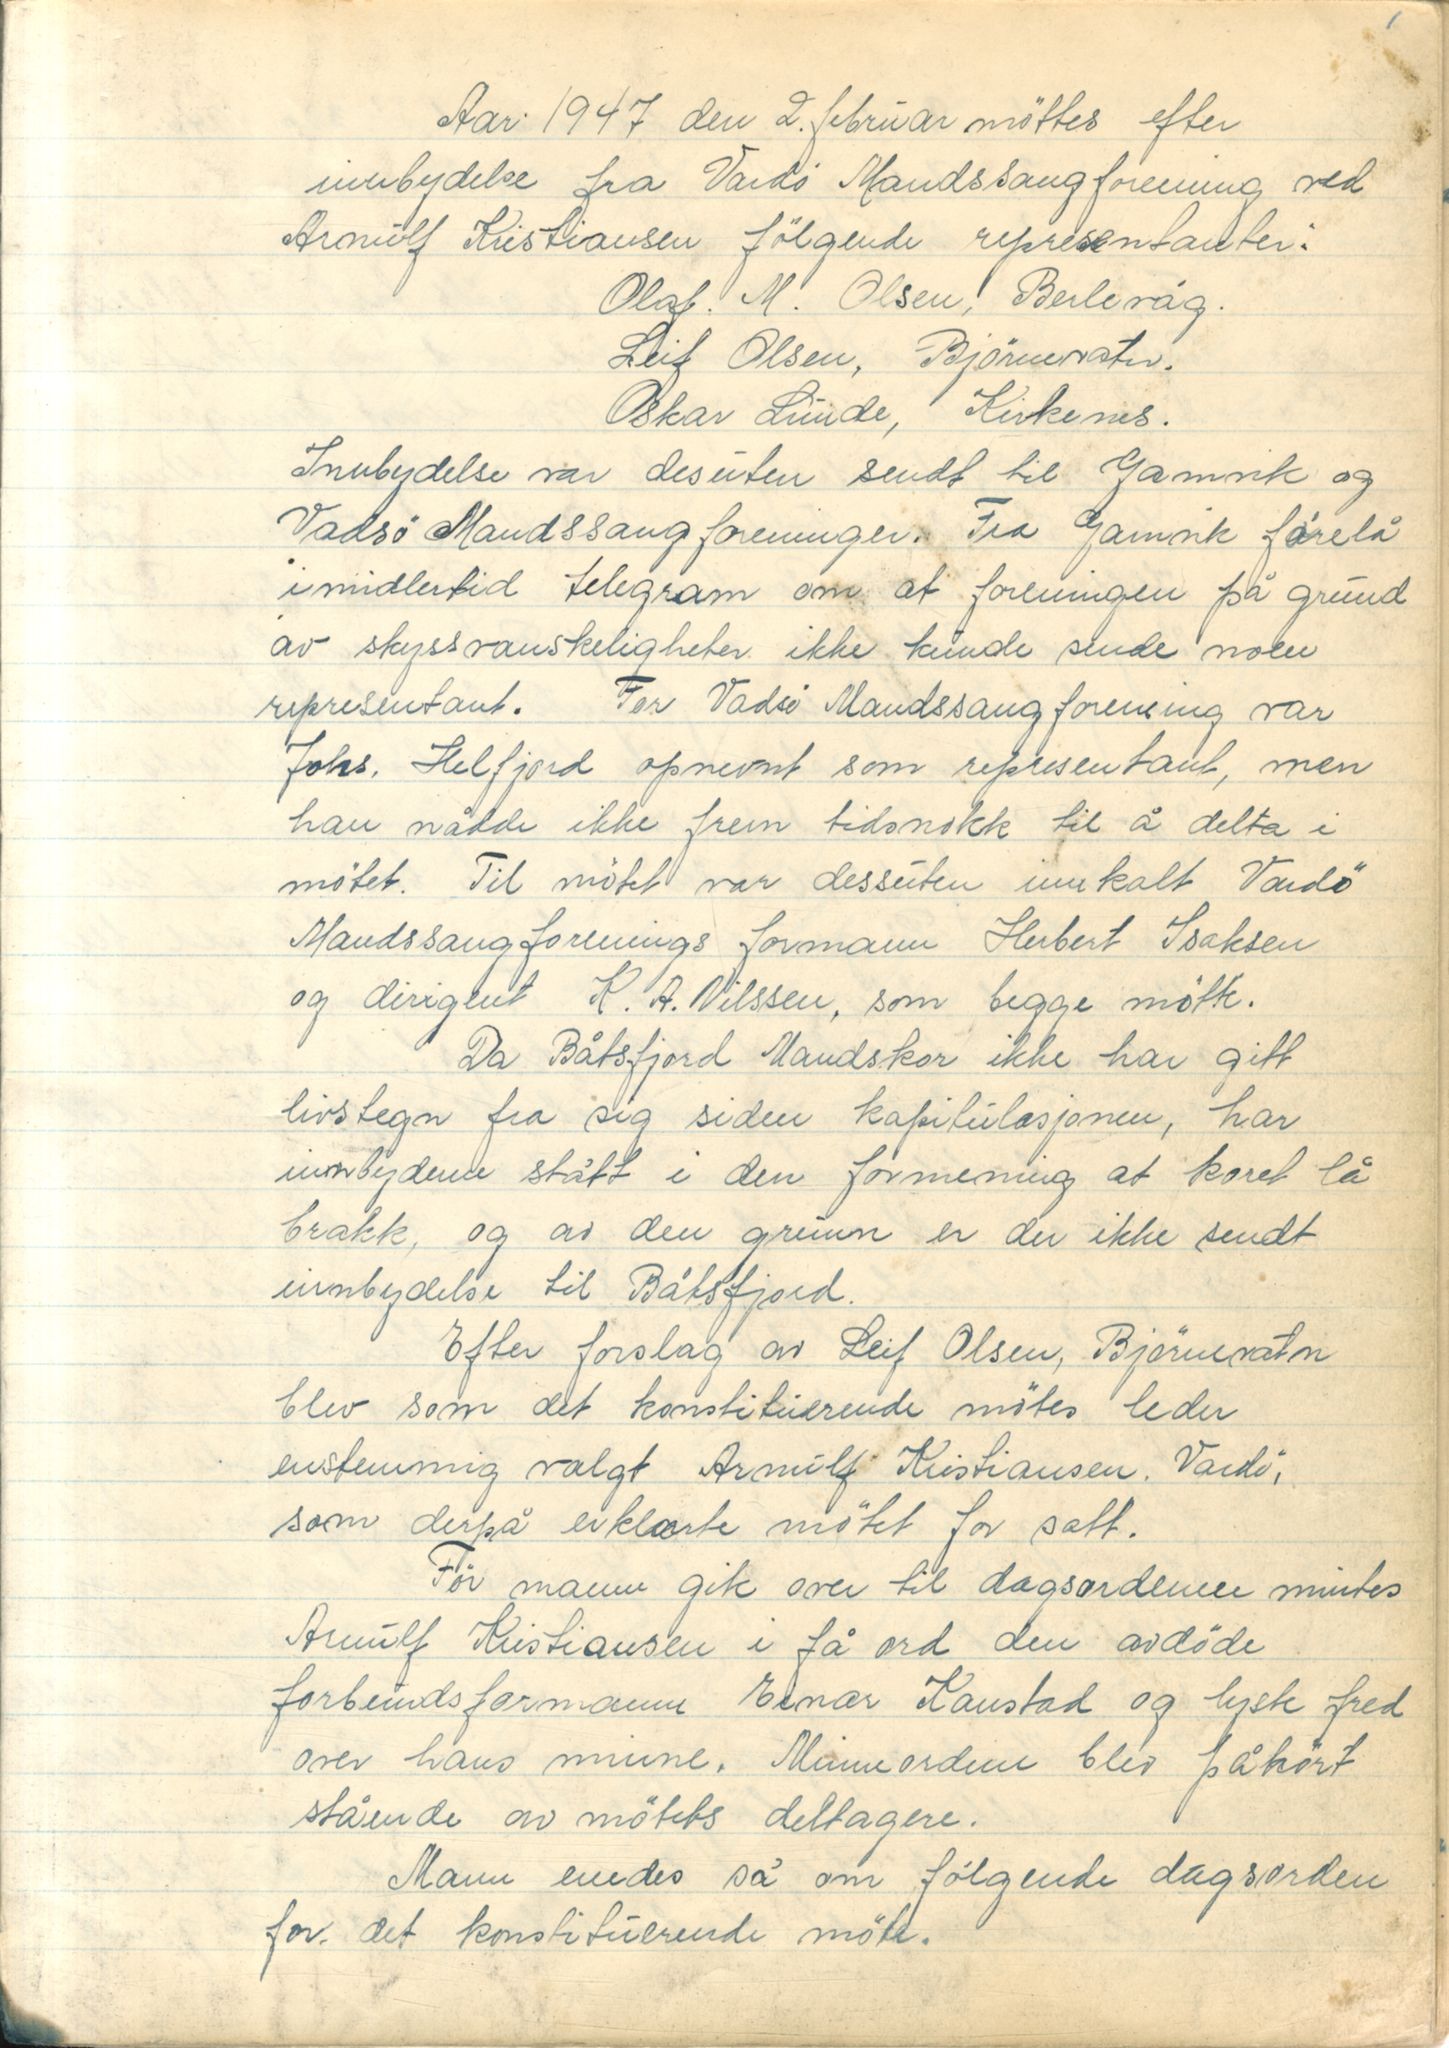 1
Aar 1947 den 2. februar möttes efter
innbydelse fra Vardö Mandssangforening ved
Arnulf Kristiansen fölgende representanter:
Olaf. M. Olsen, Berlevåg.
Leif Olsen, Björnevatn.
Oskar Lunde, Kirkenes.
Innbydelse var desuten sendt til Gamvik og
Vadsö Mandssangforeninger. Fra Gamvik forelå
imidlertid telegram om at foreningen på grund
av skyssvanskeligheter ikke kunde sende noen
representant. For Vadsö Mandssangforening var
Johs. Helfjord opnevnt som representant, men
han nådde ikke frem tidsnokk til å delta i
mötet. Til mötet var dessuten innkalt Vardö
Mandssangforenings formann Herbert Isaksen
og dirigent K. A. Nilssen, som begge mötte.
Da Båtsfjord Mandskor ikke har gitt
livstegn fra sig siden kapitulasjonen, har
innbyderne stått i den formening at koret lå
brakk, og av den grunn er der ikke sendt
innbydelse til Båtsfjord.
Efter forslag av Leif Olsen, Björnevatn
blev som det konstituerende mötes leder
enstemmig valgt Arnulf Kristiansen. Vardö,
som derpå erklærte mötet for satt.
För mann gik over til dagsordenen mintes
Arnulf Kristiansen i få ord den avdöde
forbundsformann Einar Kanstad og lyste fred
over hans minne. Minneordene blev påhört
stående av mötets deltagere.
Mann enedes så om fölgende dagsorden
for det konstituerende möte.